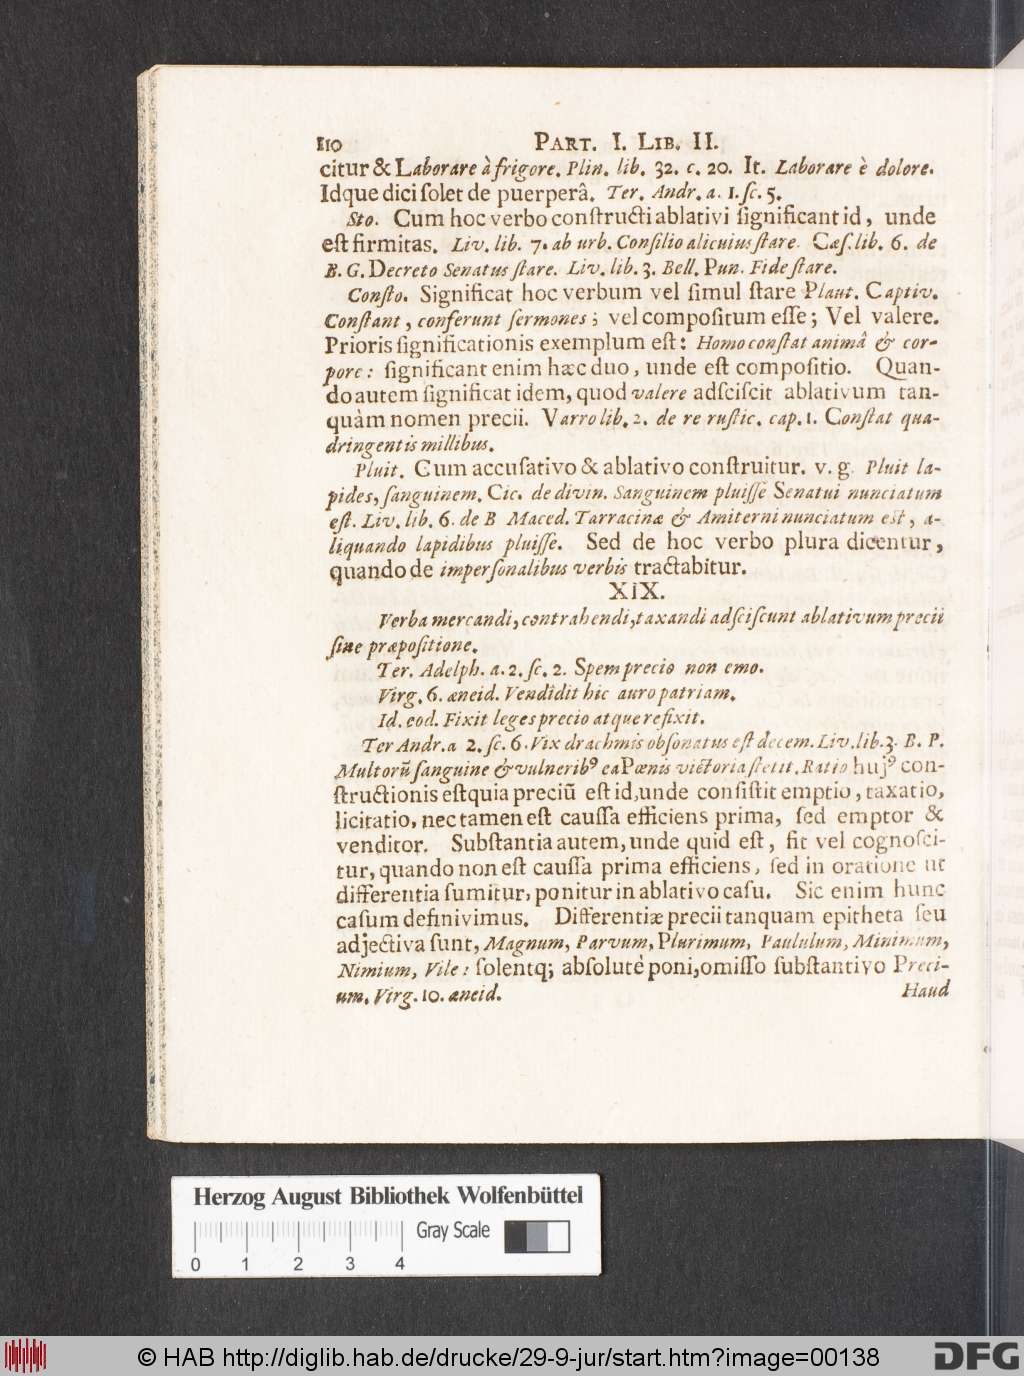 110 PART. I. LIB. II.
citur & Laborare à frigore. Plin. lib. 32. c. 20. It. Laborare è dolore.
Idque dici ſolet de puerperâ. Ter. Andr. a. 1. ſc. 5.
Sto. Cum hoc verbo conſtructi ablativi ſignificant id, unde
eſt firmitas. Liv. lib. 7. ab urb. Conſilio alicuius ſtare. Cæſ. lib. 6. de
B. G. Decreto Senatus ſtare. Liv. lib. 3. Bell. Pun. Fide ſtare.
Conſto. Significat hoc verbum vel ſimul ſtare Plaut. Captiv.
Conſtant, conferunt ſermones; vel compoſitum eſſe; Vel valere.
Prioris ſignificationis exemplum eſt: Homo conſtat animâ & cor-
pore: ſignificant enim hæc duo, unde eſt compoſitio. Quan-
do autem ſignificat idem, quod valere adſciſcit ablativum tan-
quàm nomen precii. Varro lib. 2. de re ruſtic. cap. 1. Conſtat qua-
dringentis millibus.
Pluit. Cum accuſativo & ablativo conſtruitur. v. g. Pluit la-
pides, ſanguinem. Cic. de divin. Sanguinem pluiſſe Senatui nunciatum
eſt. Liv. lib. 6. de B Maced. Tarracinæ & Amiterni nunciatum est, a-
liquando lapidibus pluiſſe. Sed de hoc verbo plura dicentur,
quando de imperſonalibus verbis tractabitur.
XIX.
Verba mercandi, contrahendi, taxandi adſciſcunt ablativum precii
ſine præpoſitione.
Ter. Adelph. a. 2. ſc. 2. Spem precio non emo.
Virg. 6. æneid. Vendîdit hic auro patriam.
Id. eod. Fixit leges precio atque refixit.
Ter Andr. a 2. ſc. 6. Vix drachmis obſonatus eſt decem. Liv. lib. 3. B. P.
Multorũ ſanguine & vulneribꝰ ea Pœnis victoria ſtetit. Ratio hujꝰ con-
ſtructionis eſt quia preciũ eſt id, unde conſiſtit emptio, taxatio,
licitatio, nec tamen eſt cauſſa efficiens prima, ſed emptor &
venditor. Subſtantia autem, unde quid eſt, fit vel cognoſci-
tur, quando non eſt cauſſa prima efficiens, ſed in oratione ut
differentia ſumitur, ponitur in ablativo caſu. Sic enim hunc
caſum definivimus. Differentiæ precii tanquam epitheta ſeu
adjectiva ſunt, Magnum, Parvum, Plurimum, Paululum, Minimum,
Nimium, Vile: ſolentq; abſolutè poni, omiſſo ſubſtantivo Preci-
um. Virg. 10. æneid. Haud
Herzog August Bibliothek Wolfenbüttel
Gray Scale
0 1 2 3 4
© HAB http://diglib.hab.de/drucke/29-9-jur/start.htm?image=00138
DFG